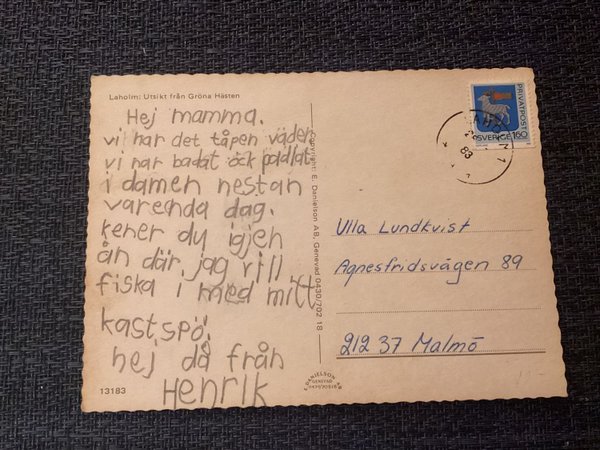 Laholm: Utsikt från Gröna Hästen
Hej mamma.
vi har det tåpen väder
vi har badat öck padlat
i damen nestan
varenda dag.
kener du igjen
ån där jag vill
fiska i med mitt
kastspö.
hej då från
Henrik
13183
Copyright: E. Danielson AB, Genevad 0430/702 18
E. DANIELSON AB
GENEVAD
PRIVATPOST
SVERIGE 160
LAHOLM 1
83
Ulla Lundkvist
Agnesfridsvägen 89
212 37 Malmö